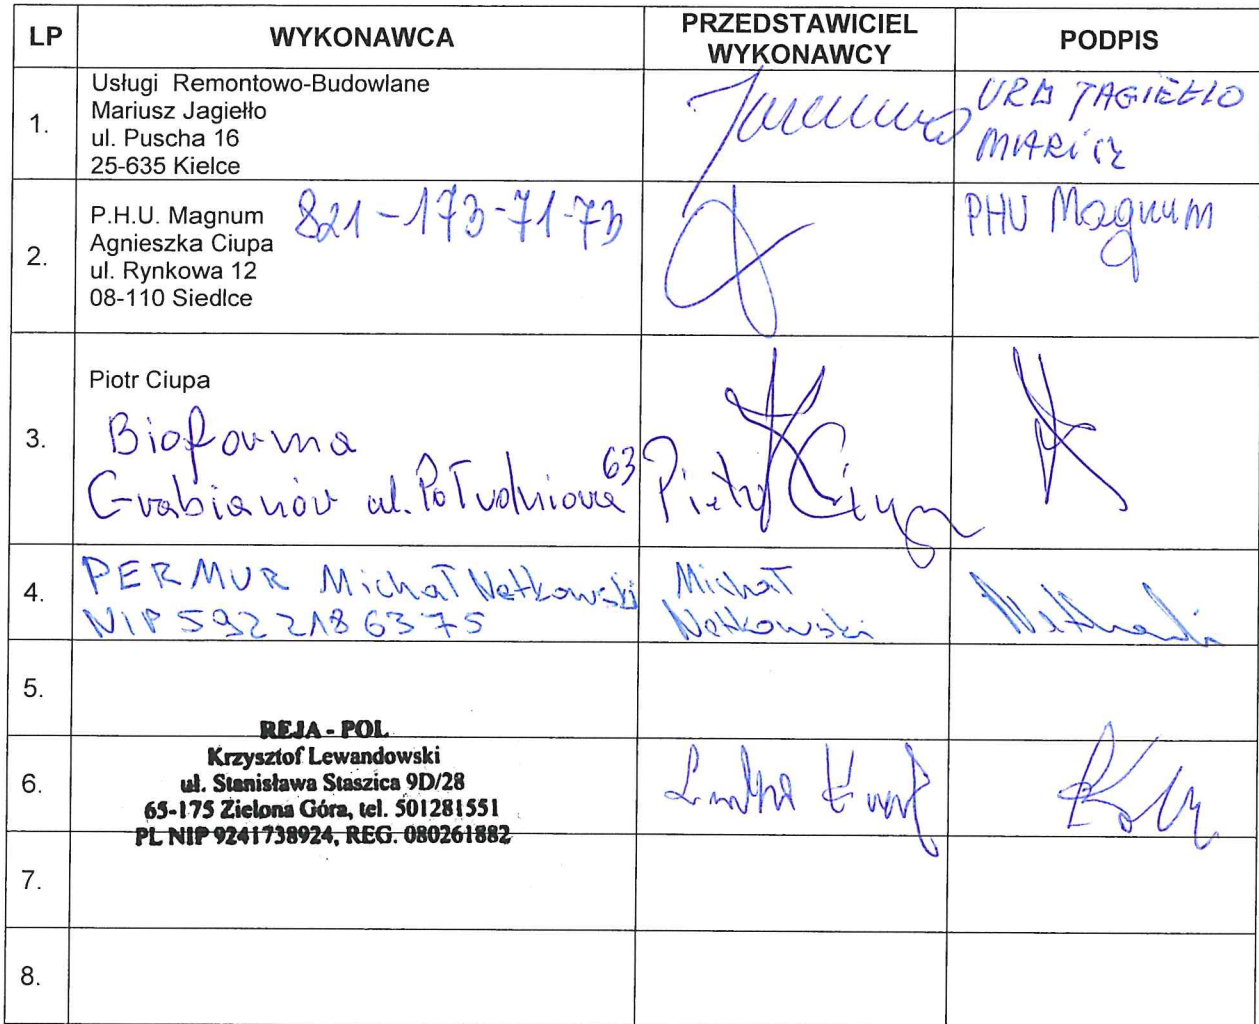 LP
WYKONAWCA
PRZEDSTAWICIEL
WYKONAWCY
PODPIS
1.
Usługi Remontowo-Budowlane
Mariusz Jagiełło
ul. Puscha 16
25-635 Kielce
URB JAGIEŁŁO
2.
P.H.U. Magnum
Agnieszka Ciupa
ul. Rynkowa 12
08-110 Siedlce
821-173-71-73
PHU Magnum
3.
Piotr Ciupa
Biofarma
Grabianów ul. Południowa 63
Piotr Ciupa
4.
PERMUR Michał Netkowski
NIP 5922186375
Michał
Netkowski
Netkowski
5.
6.
REJA - POL
Krzysztof Lewandowski
ul. Stanisława Staszica 9D/28
65-175 Zielona Góra, tel. 501281551
PL NIP 9241738924, REG. 080261882
7.
8.